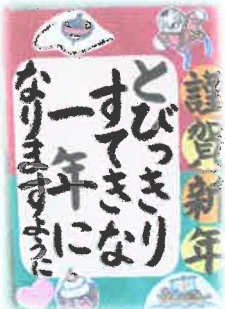 謹賀新年
とびっきり
すてきな
一年に
なりますように